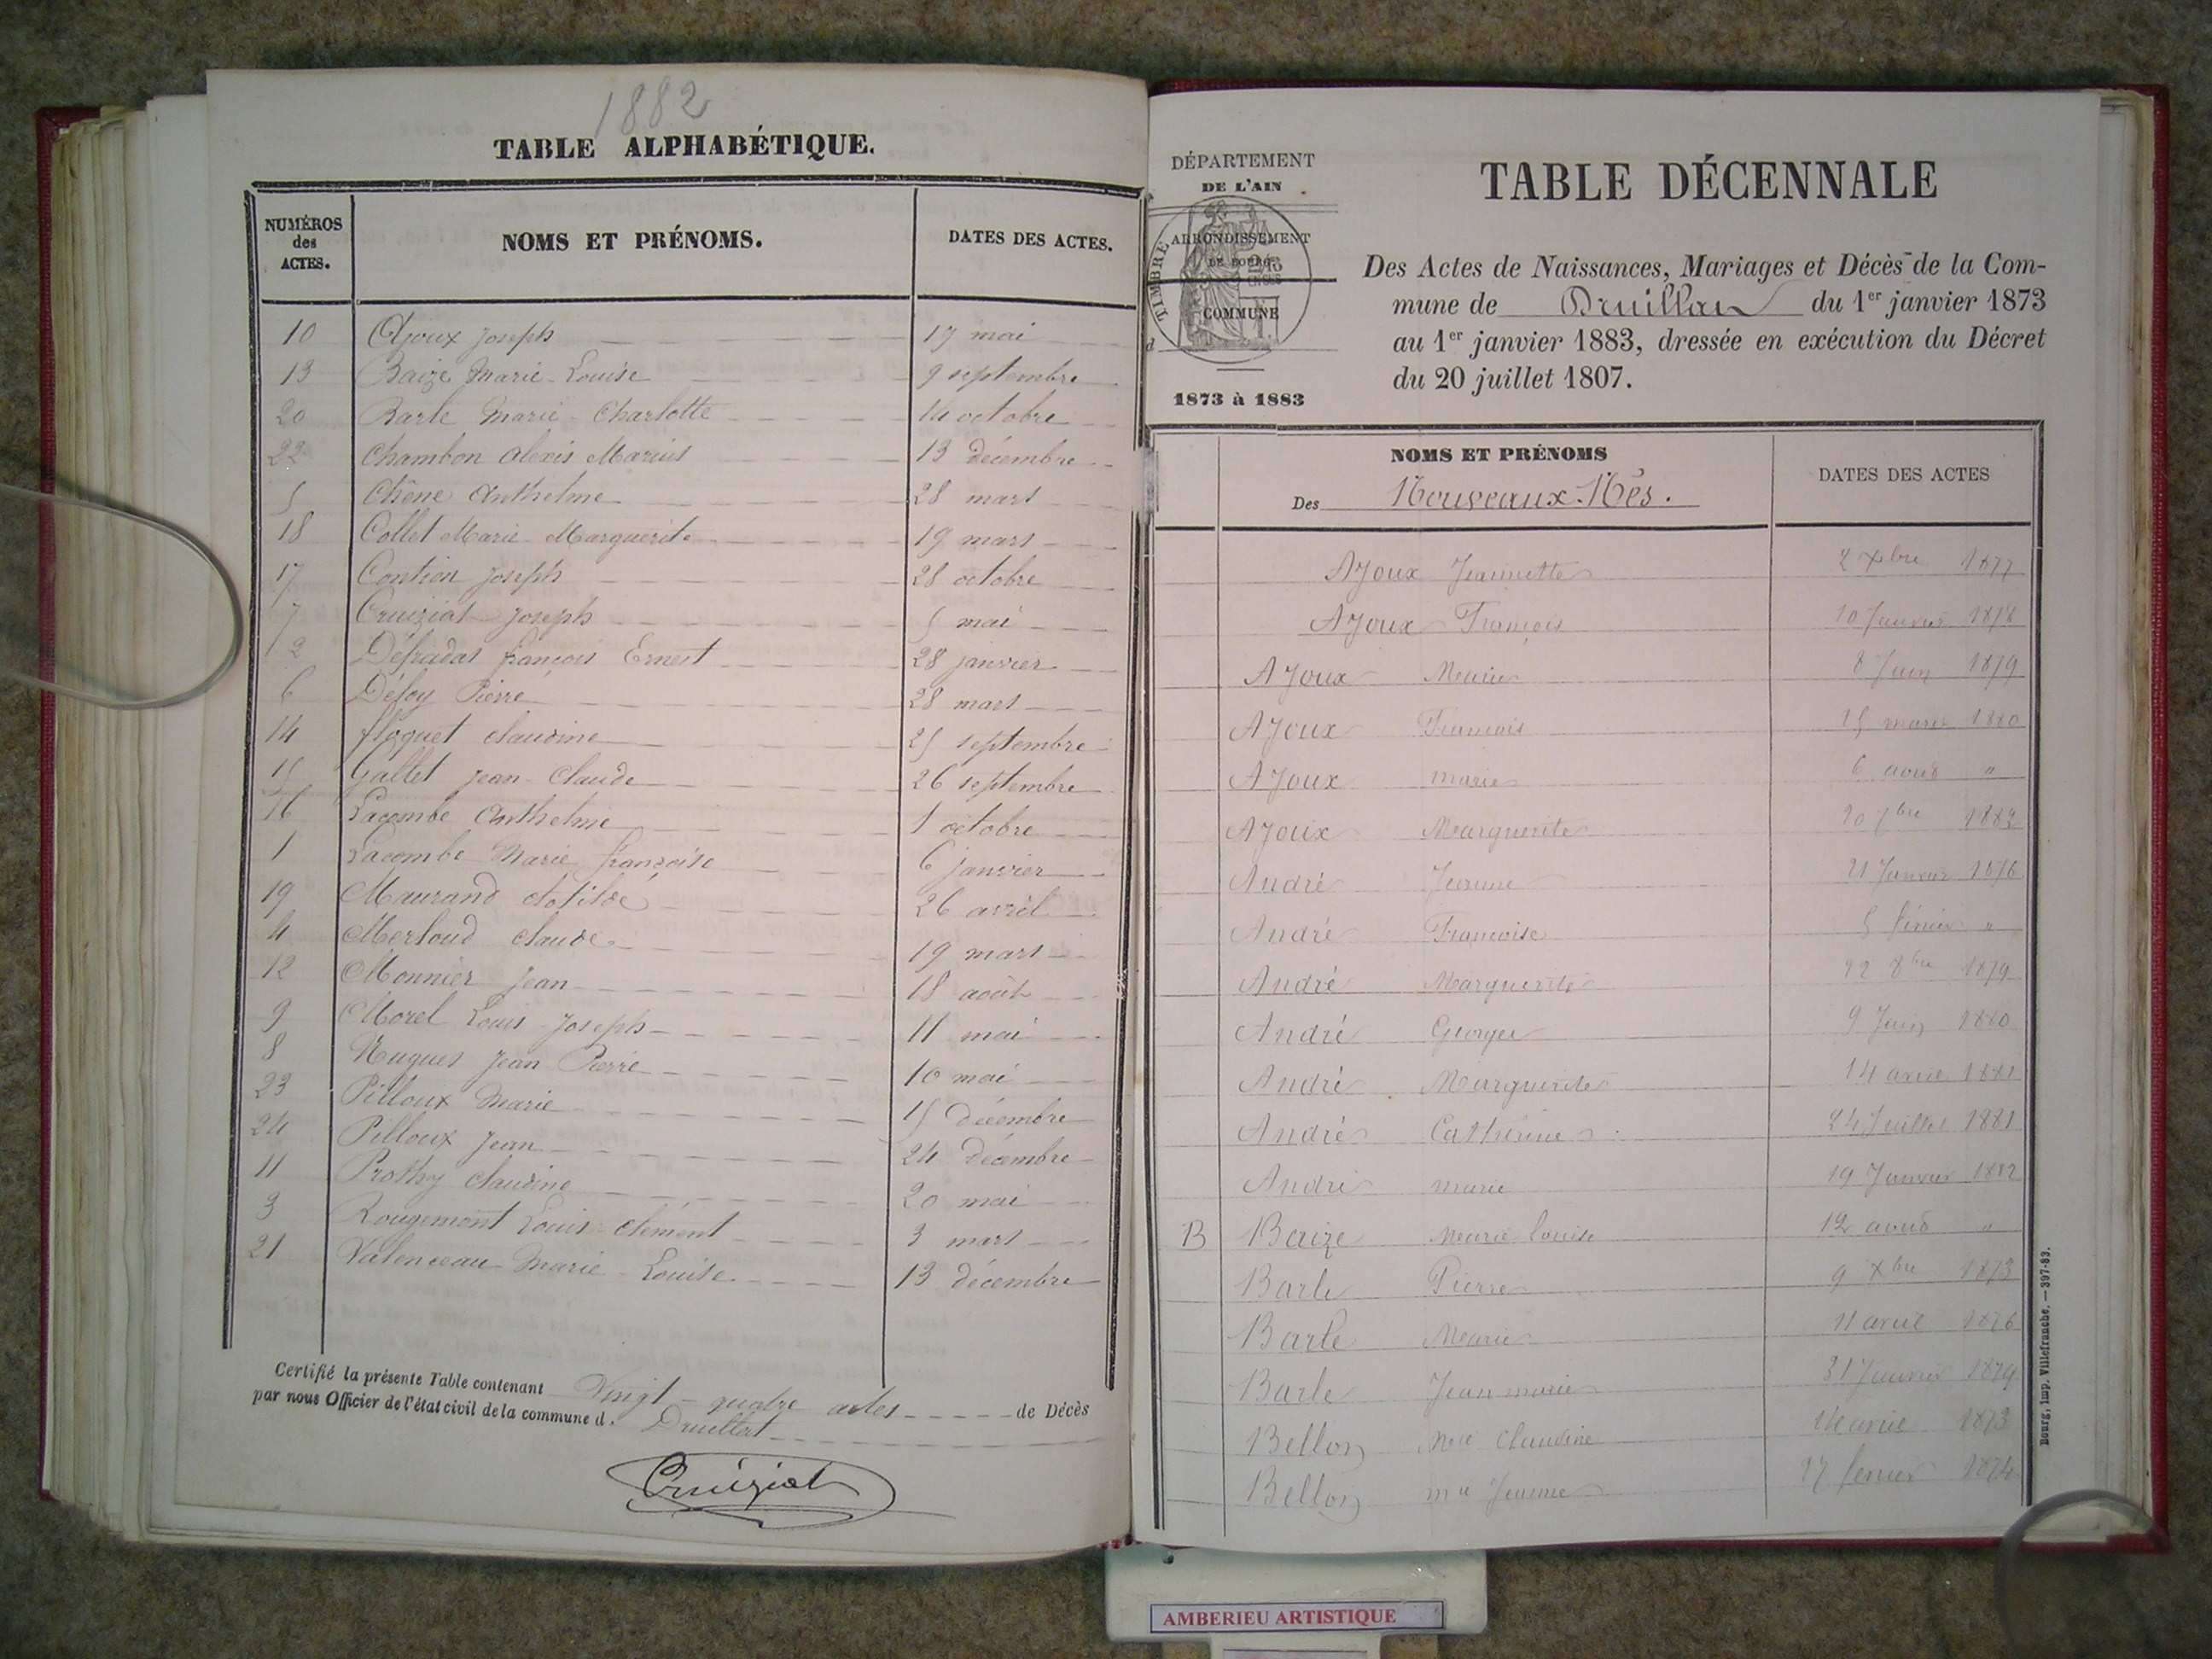 1882
TABLE ALPHABÉTIQUE.
NUMÉROS des ACTES. NOMS ET PRÉNOMS. DATES DES ACTES.
10 Ajoux Joseph 17 mai
13 Baize Marie-Louise 9 septembre
20 Barle Marie-Charlotte 14 octobre
22 Chambon Alexis Marius 13 décembre
5 Chêne Anthelme 28 mars
18 Collet Marie-Marguerite 19 mars
17 Contion Joseph 28 octobre
7 Cruiziat Joseph 5 mai
2 Défradas françois Ernest 28 janvier
6 Défoy Pierre 28 mars
14 floquet claudine 25 septembre
15 Gallet Jean-Claude 26 septembre
16 Lacombe Anthelme 1 octobre
1 Lacombe Marie françoise 6 janvier
19 Maurand clotilde 26 avril
4 Merloud claude 19 mars
12 Monnier Jean 18 août
9 Morel Louis-Joseph 11 mai
8 Nugues Jean Pierre 10 mai
23 Pilloux Marie 15 décembre
24 Pilloux Jean 24 décembre
11 Prothy claudine 20 mai
3 Rougemont Louis-clément 3 mars
21 Valenceau Marie-Louise 13 décembre
Certifié la présente Table contenant Vingt-quatre actes de Décès
par nous Officier de l'état civil de la commune d. Druillat
Cruiziat
DÉPARTEMENT
DE L'AIN
ARRONDISSEMENT
DE BOURG
TIMBRE
COMMUNE
d
1873 à 1883
TABLE DÉCENNALE
Des Actes de Naissances, Mariages et Décès de la Com-
mune de Druillat du 1er janvier 1873
au 1er janvier 1883, dressée en exécution du Décret
du 20 juillet 1807.
NOMS ET PRÉNOMS
Des Nouveaux-Nés.
DATES DES ACTES
AJoux Jeannette 2 Xbre 1877
AJoux François 10 Janvier 1878
AJoux Marie 8 Juin 1879
AJoux François 15 mars 1880
AJoux marie 6 aout "
AJoux Marguerite 20 7bre 1882
André Jeanne 21 Janvier 1876
André Françoise 5 février "
André Marguerite 22 8bre 1879
André Georges 9 Juin 1880
André Marguerite 14 avril 1881
André Catherine 24 Juillet 1881
André marie 19 Janvier 1882
B Baize Marie louise 12 aout "
Barle Pierre 9 Xbre 1873
Barle Marie 11 avril 1876
Barle Jean marie 31 Janvier 1879
Bellon Mie Claudine avril 1873
Bellon mie Jeanne 17 fevrier 1874
Bourg, imp. Villefranche. — 397-83.
AMBERIEU ARTISTIQUE